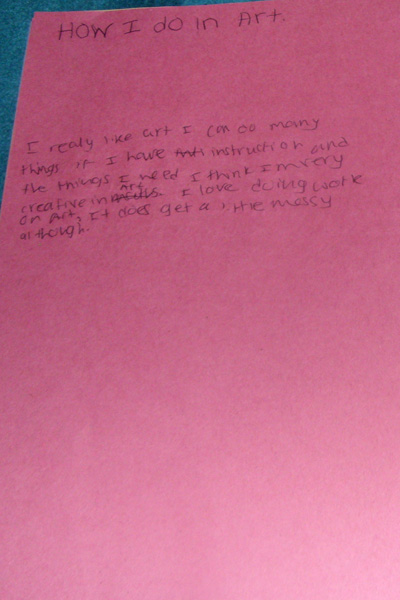 How I do in Art.
I realy like art I can do many
things if I have instruction and
the things I need I think I'm very
creative in Art. I love doing work
on Art, It does get a little messy
although.